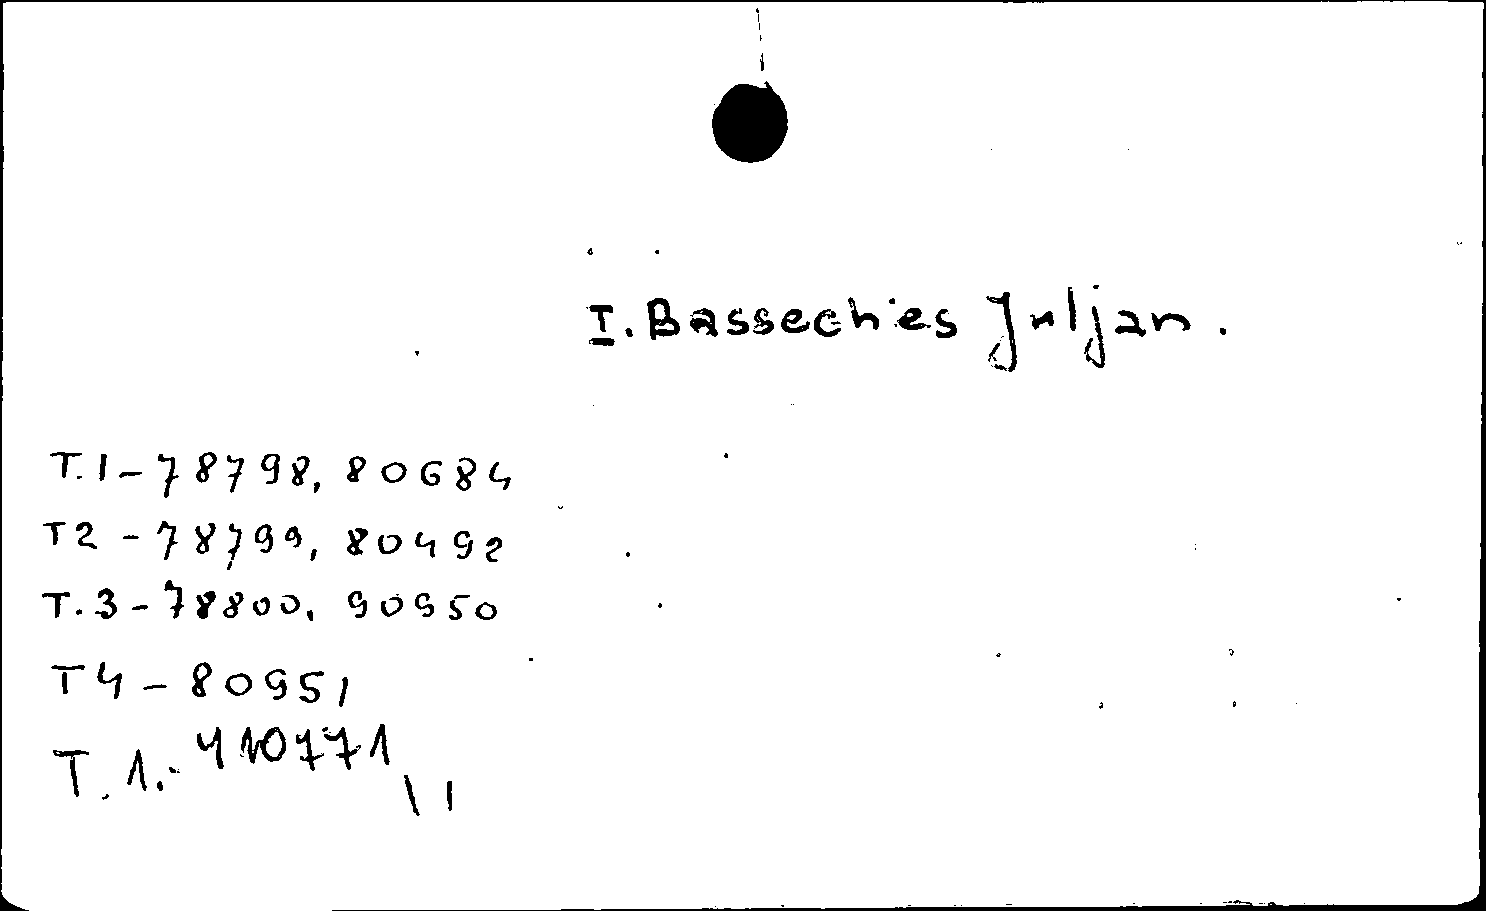 I. Bassechies Juljan.
T.1-78798, 80684
T2-78799, 80492
T.3-78800, 90950
T4-80951
T.1.-410771